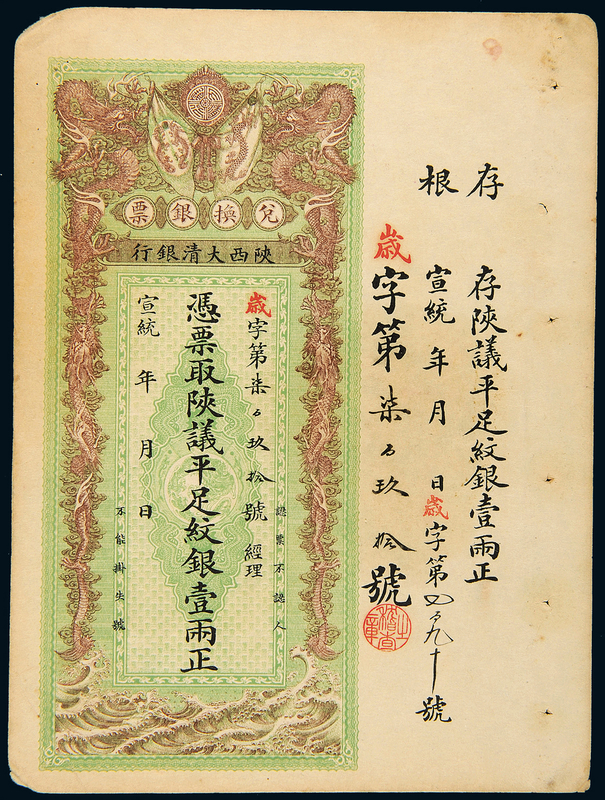 兌換銀票
陝西大清銀行
歲字第柒百玖拾號 經理
憑票取陝議平足紋銀壹兩正
宣統 年 月 日
認票不認人
不能掛失號
存根
存陝議平足紋銀壹兩正
宣統 年 月 日歲字第四百九十號
歲字第柒百玖拾號